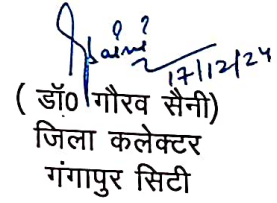 Saini
17/12/24
( डॉ0 गौरव सैनी)
जिला कलेक्टर
गंगापुर सिटी